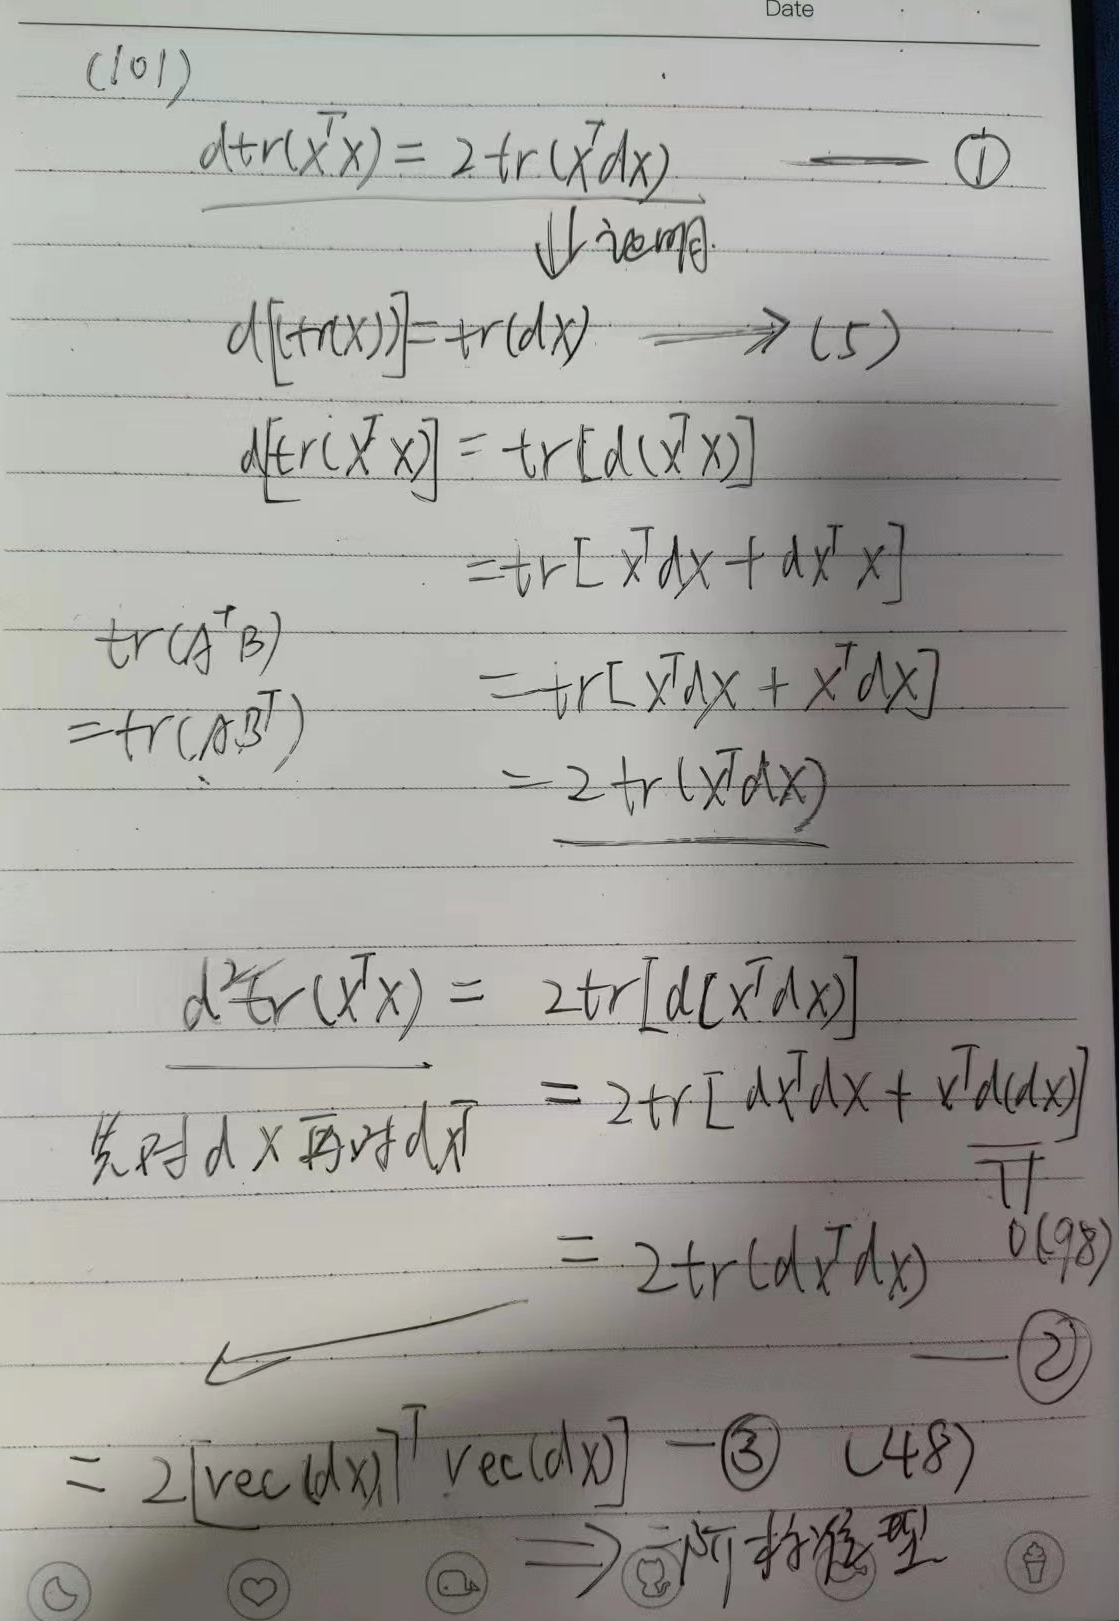 Date
(101)
dtr(XᵀX) = 2tr(XᵀdX) —— ①
⇓ 证明.
d[(tr(X))] = tr(dX) ⟹ (5)
d[tr(XᵀX)] = tr[d(XᵀX)]
= tr[XᵀdX + dXᵀX]
tr(AᵀB)
= tr[XᵀdX + XᵀdX]
= tr(ABᵀ)
= 2tr(XᵀdX)
d²tr(XᵀX) = 2tr[d(XᵀdX)]
= 2tr[dXᵀdX + Xᵀd(dX)]
先对dX再对dXᵀ
= 2tr(dXᵀdX)
0(98)
—②
= 2[vec(dX)]ᵀ vec(dX)] —③ (48)
⟹ 二阶标准型